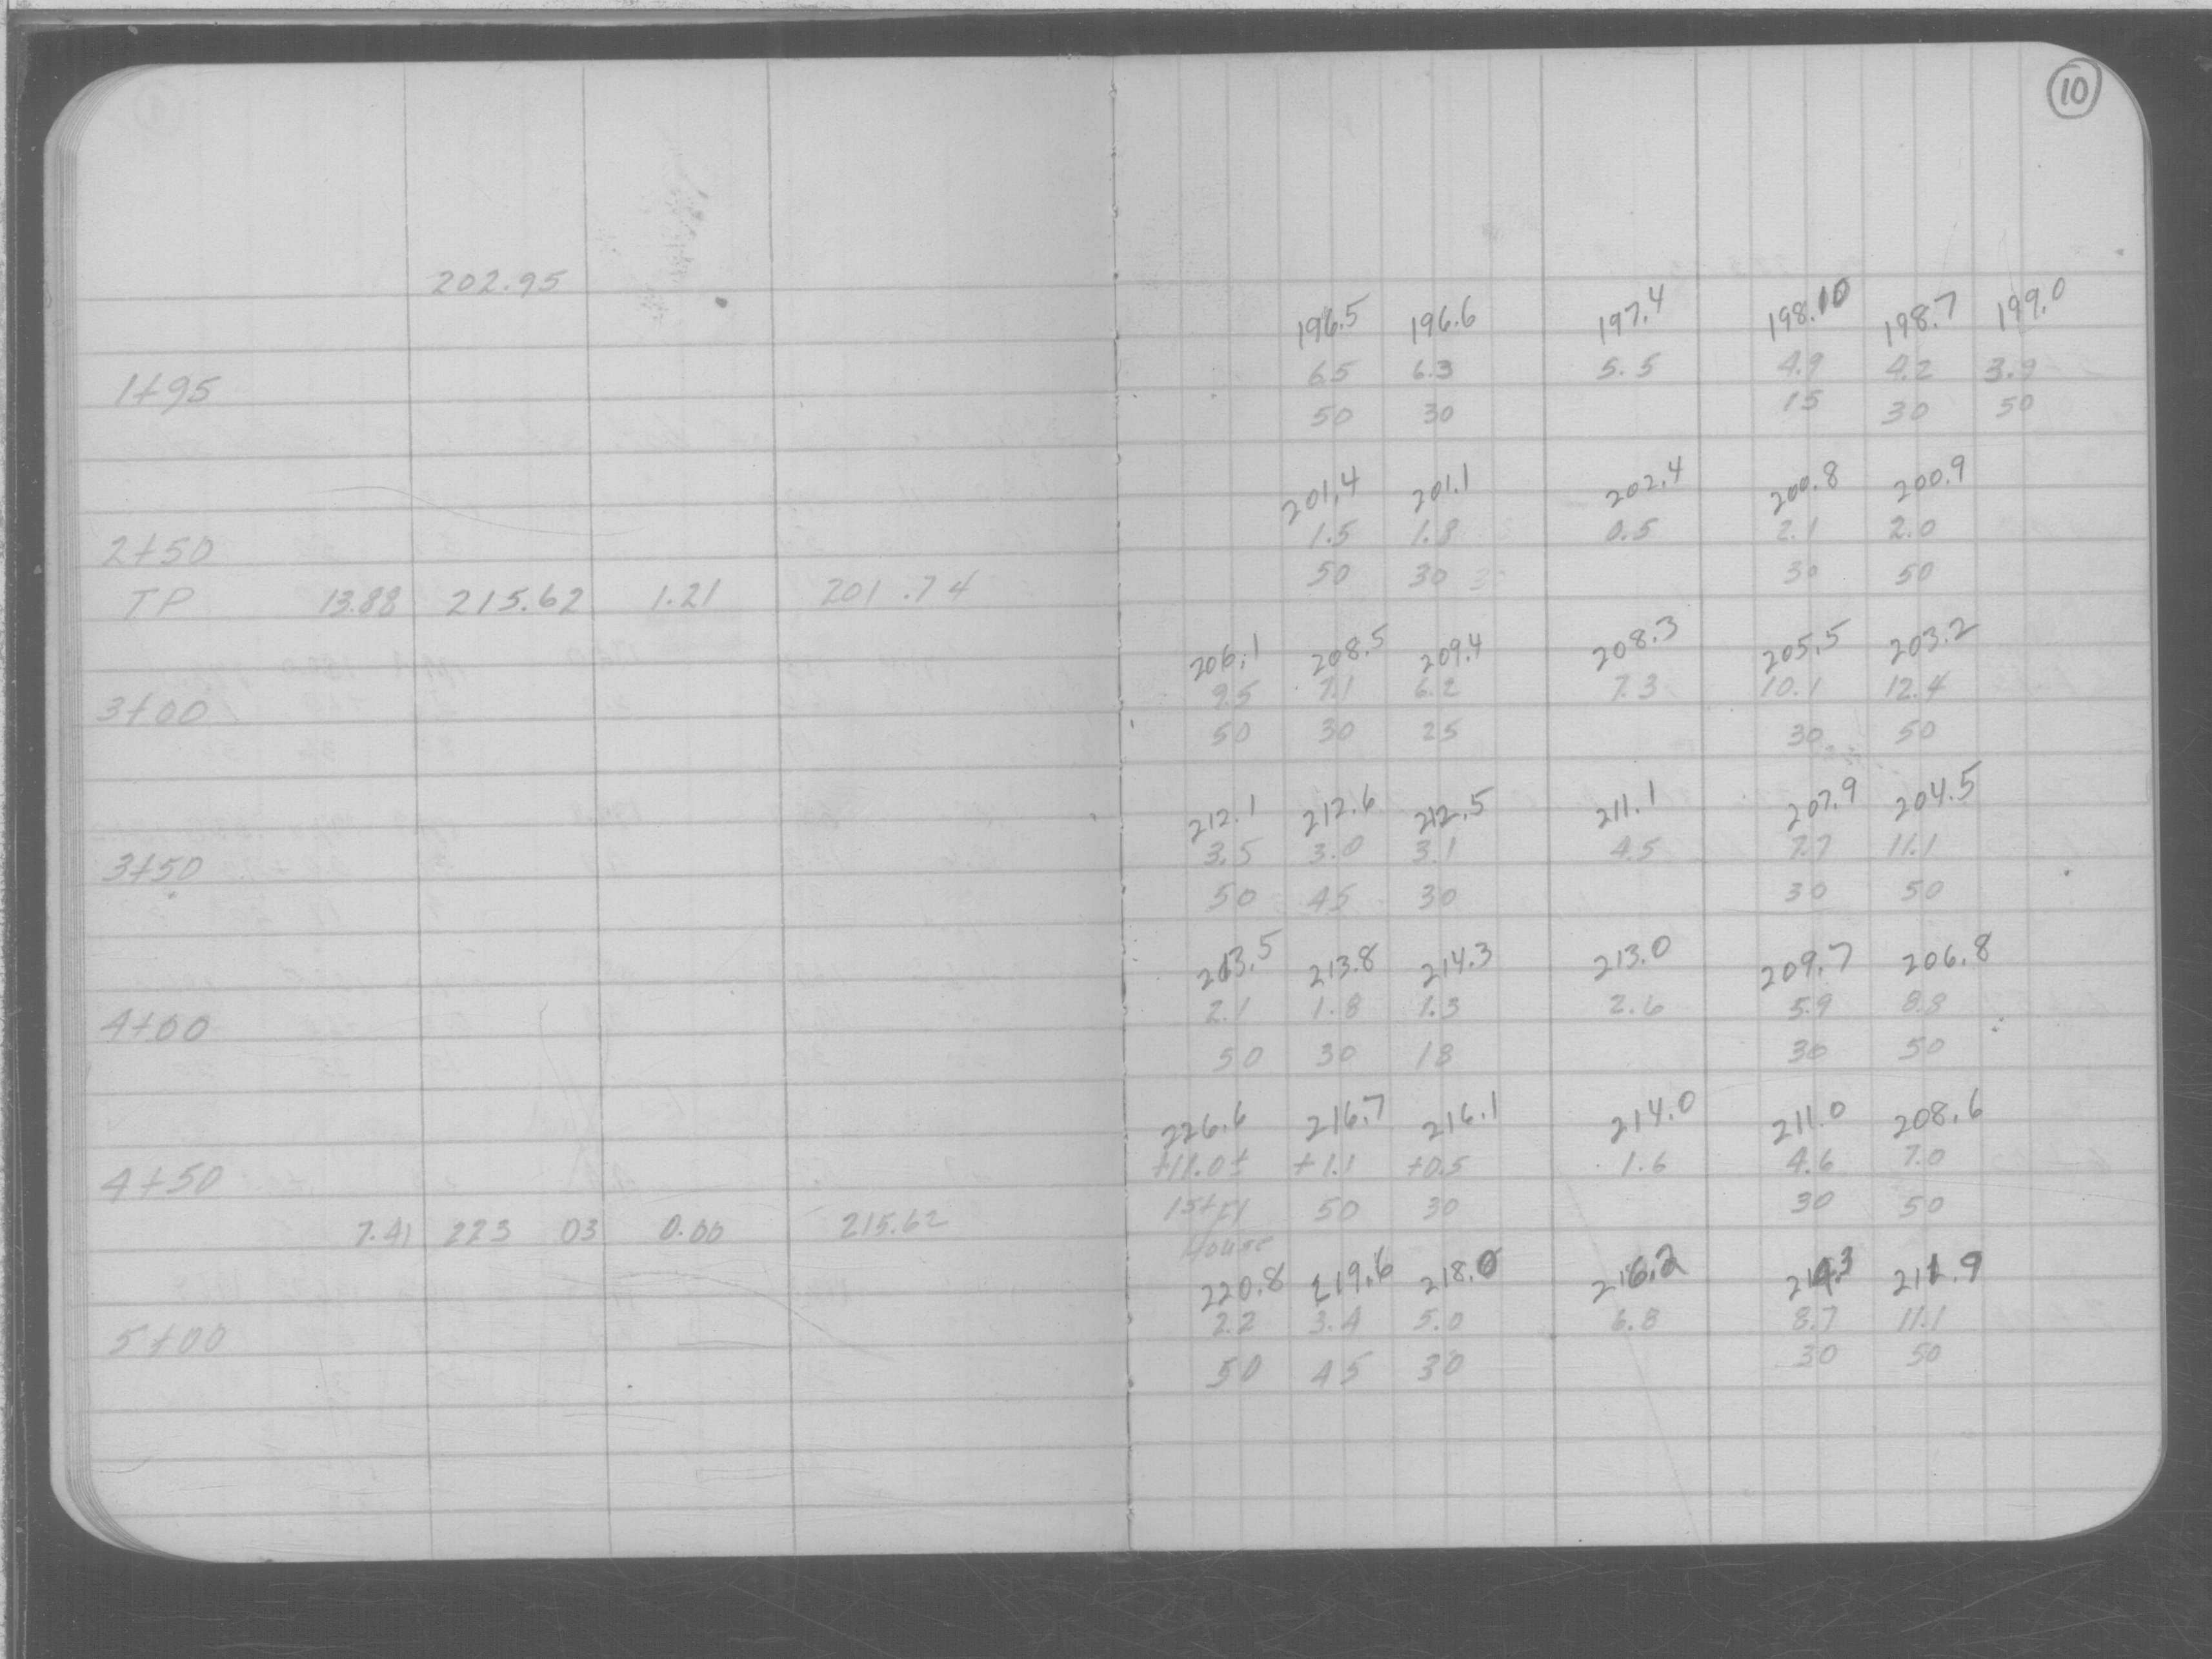 10
202.95
196.5 196.6 197.4 198.10 198.7 199.0
1+95 6.5 6.3 5.5 4.9 4.2 3.9
50 30 15 30 50
201.4 201.1 202.4 200.8 200.9
2+50 1.5 1.8 0.5 2.1 2.0
50 30 30 50
TP 13.88 215.62 1.21 201.74
206.1 208.5 209.4 208.3 205.5 203.2
3+00 9.5 7.1 6.2 7.3 10.1 12.4
50 30 25 30 50
212.1 212.6 212.5 211.1 207.9 204.5
3+50 3.5 3.0 3.1 4.5 7.7 11.1
50 45 30 30 50
213.5 213.8 214.3 213.0 209.7 206.8
4+00 2.1 1.8 1.3 2.6 5.9 8.8
50 30 18 30 50
226.6 216.7 216.1 214.0 211.0 208.6
4+50 +11.0± +1.1 +0.5 1.6 4.6 7.0
1st Fl 50 30 30 50
7.41 223 03 0.00 215.62 House
220.8 219.6 218.0 216.2 214.3 211.9
5+00 2.2 3.4 5.0 6.8 8.7 11.1
50 45 30 30 50